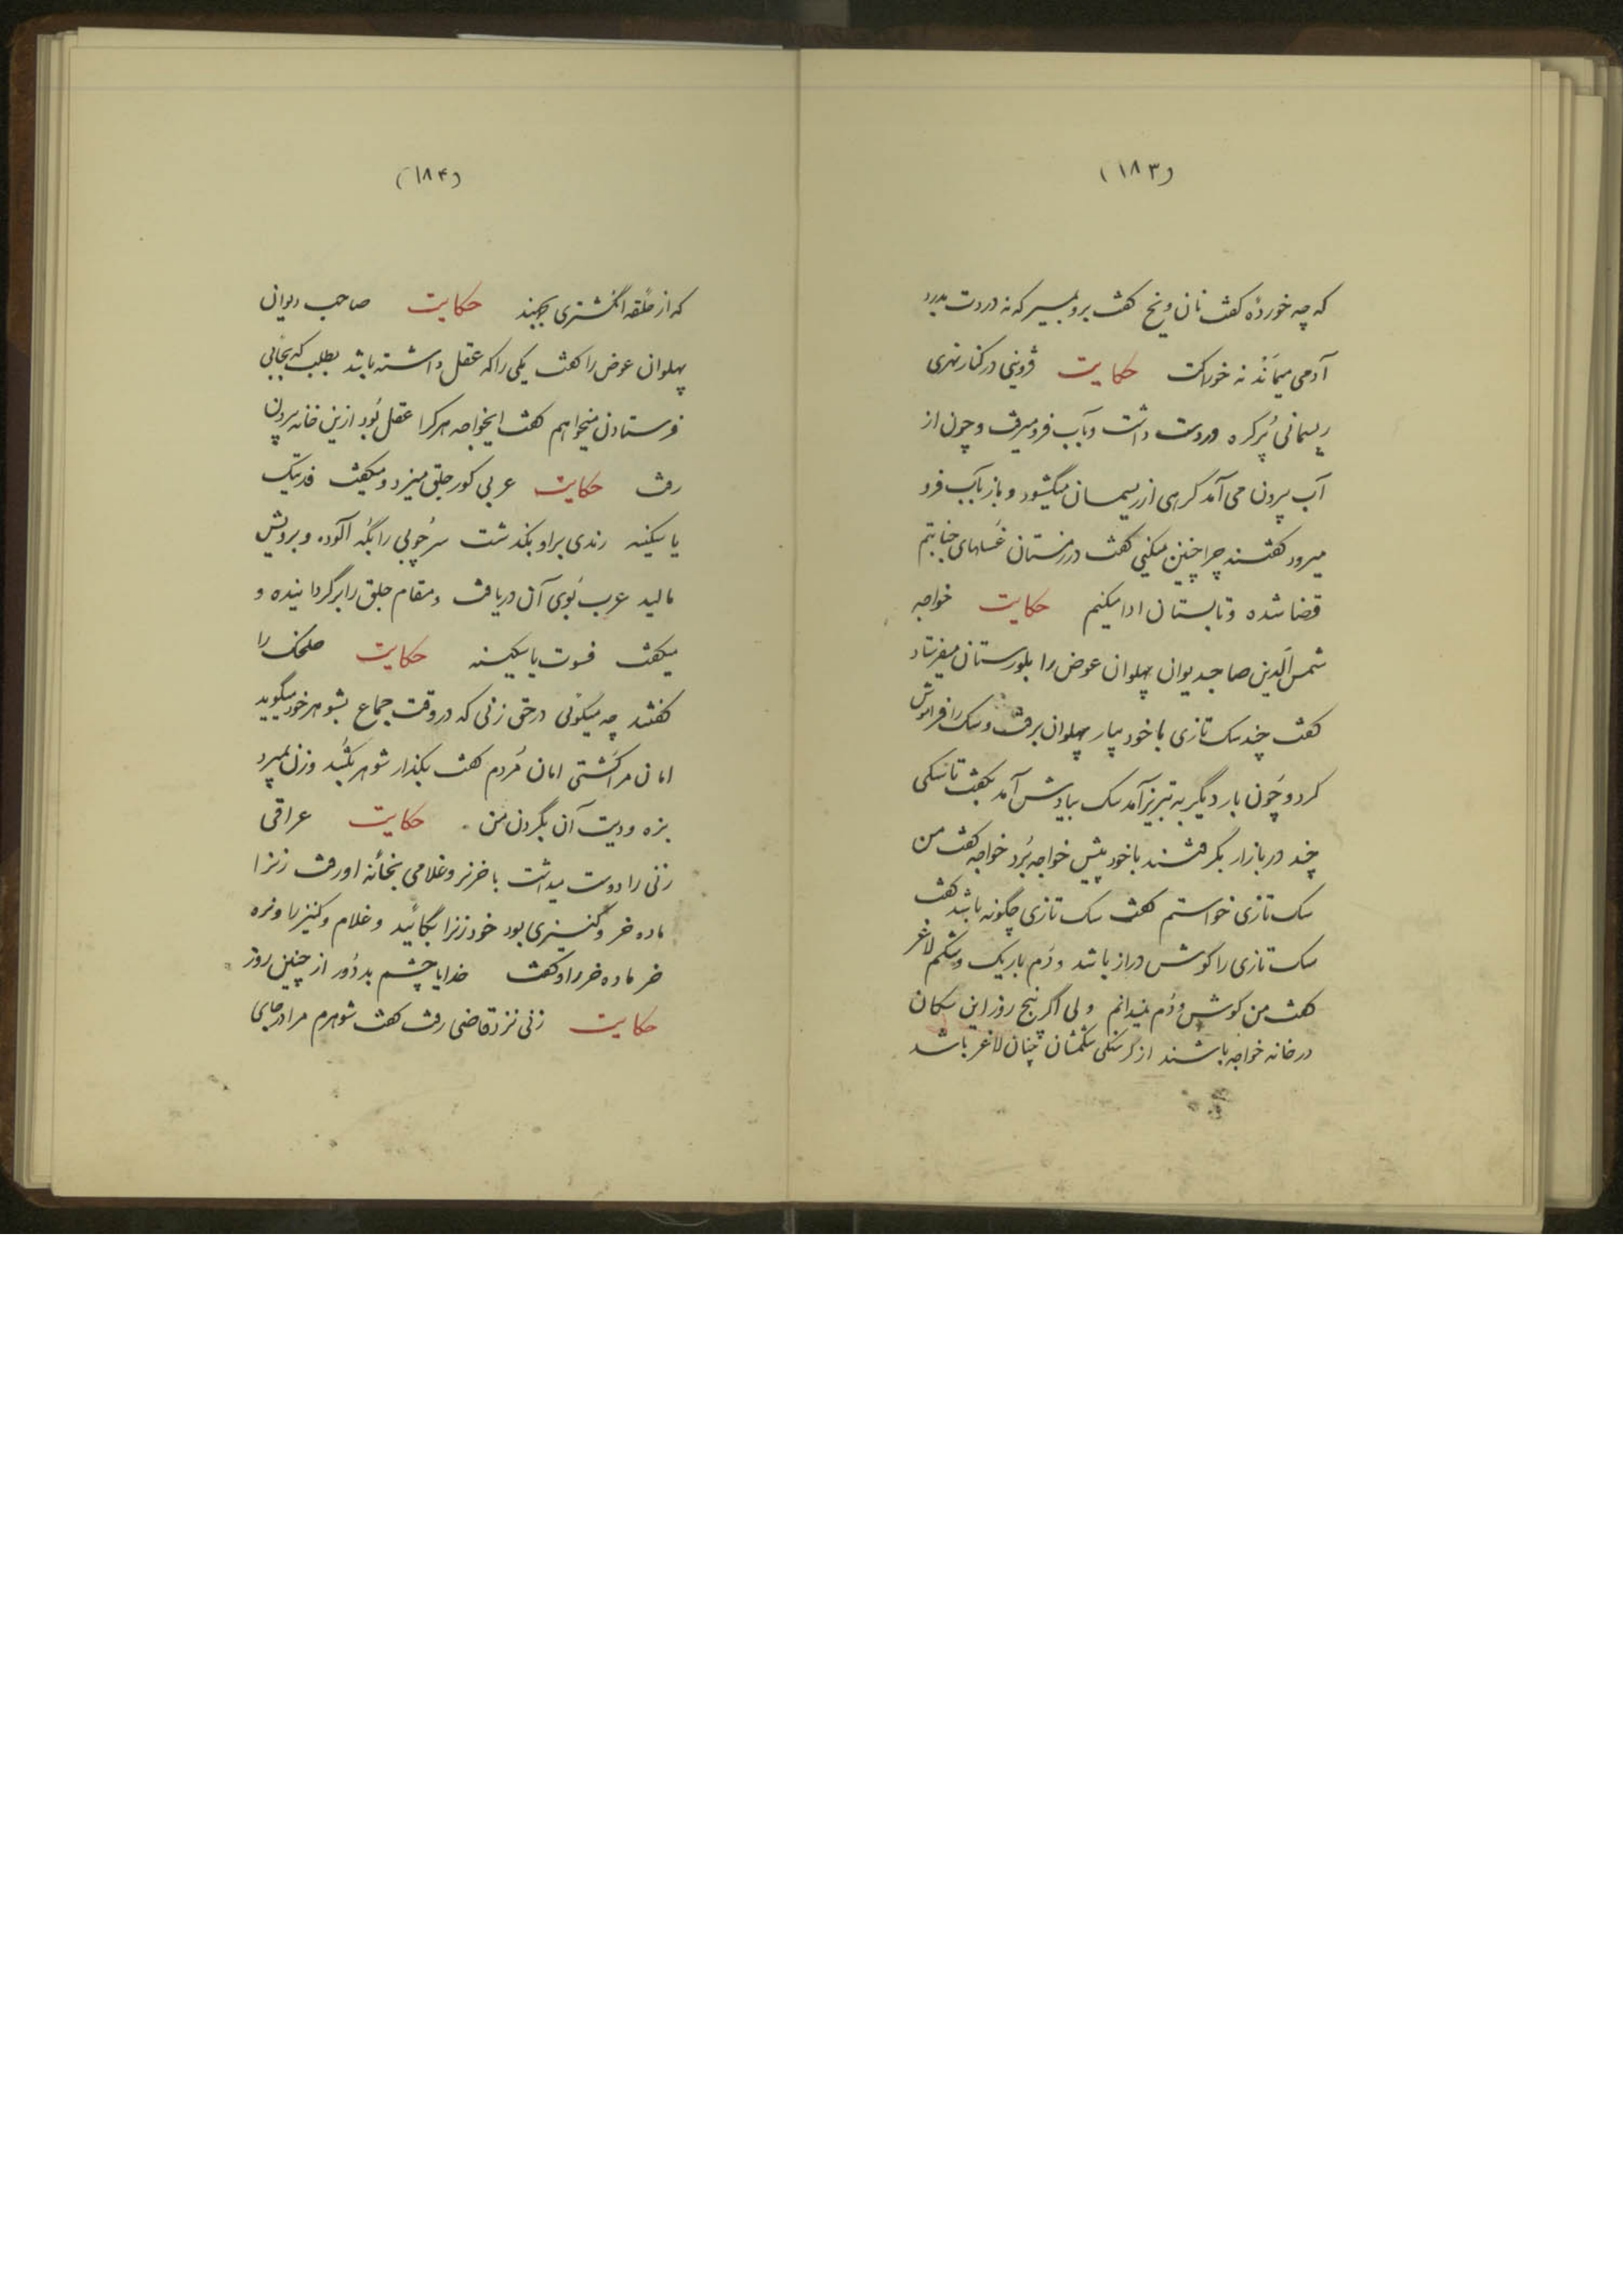 (۱۸۳)
که چه خوردهٔ کفت نان و یخ کفت برو بمیر که نه دردت بدرد
آدمی میمانَد نه خوراکت حکایت قزوینی در کنار نهری
ریسمانی پُرکره در دست داشت و بآب فرومیرفت و چون از
آب بیرون می آمد کرهی از ریسمان میکشود و باز بآب فرو
میرود کفتند چرا چنین میکنی کفت در زمستان غُسلهای جنابتم
قضا شده و تابستان ادا میکنم حکایت خواجه
شمس الّدین صاحبدیوان پهلوان عوض را بلورستان میفرستاد
کفت چند سک تازی با خود بیار پهلوان برفت و سک را فراموش
کرد و چُون بار دیگر به تبریز آمد سک بیادش آمد بکفت تا سکی
چند در بازار بگرفتند با خود پیش خواجه بُرد خواجه کفت من
سک تازی خواستم کفت سک تازی چگونه باشد کفت
سک تازی را کوش دراز باشد و دُم باریک و شکم لاغر
کفت من کوش و دُم نمیدانم ولی اگر پنج روز این سکان
در خانه خواجه باشند از کرسنکی شکمشان چنان لاغر باشد
(۱۸۴)
که از حلقه انگشتری بجهند حکایت صاحب دیوان
پهلوان عوض را کفت یکی را که عقل داشته باشد بطلب که بجائی
فرستادن میخواهم کفت ایخواجه هر کرا عقل بُود ازین خانه بیرون
رفت حکایت عربی کور جلق میزد و میکفت فدیتک
یا سکینه رندی بر او بکذشت سر چُوبی را بگُه آلوده و برویش
مالید عرب بُوی آن دریافت و مقام جلق را برگردانیده و
میکفت فسوت یا سکینه حکایت طلحک را
کفتند چه میکوئی در حق زنی که در وقت جماع بشوهر خود میگوید
امان مرا کُشتی امان مُردم کفت بکذار شوهر بکُشد و زن بمیرد
بزه و دیت آن بگردن من حکایت عراقی
زنی را دوست میداشت با خر نر و غلامی بخانهٔ او رفت زنرا
ماده خر و کنیزی بود خود زنرا بگائید و غلام و کنیز را و نره
خر ماده خر را و کفت خدایا چشم بد دُور از چنین روز
حکایت زنی نزد قاضی رفت کفت شوهرم مرا در جای